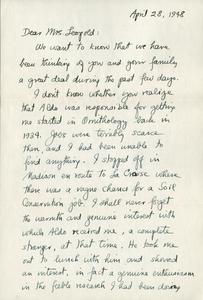 April 28, 1948
Dear Mrs. Leopold:
We want to know that we have
been thinking of you and your family
a great deal during the past few days.
I don't know whether you realize
that Aldo was responsible for getting
me started in Ornithology back in
1934. Jobs were terribly scarce
then, and I had been unable to
find anything. I stopped off in
Madison en route to La Crosse where
there was a vague chance for a Soil
Conservation job. I shall never forget
the warmth and genuine interest with
which Aldo received me, a complete
stranger, at that time. He took me
out to lunch with him and showed
an interest, in fact a genuine enthusiasm
in the feeble research I had been doing